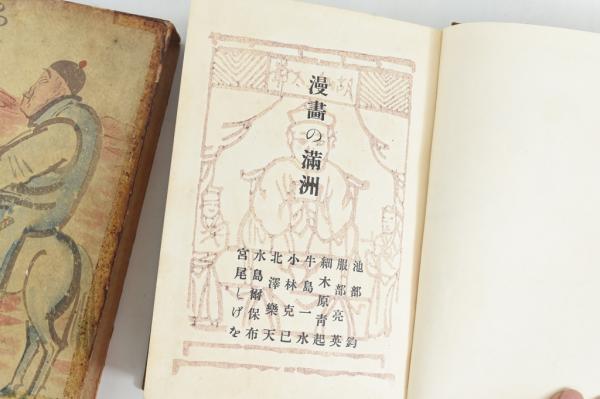 漫畵の滿洲
池部鈞
服部亮英
細木原青起
牛島一水
小林克己
北澤樂天
水島爾保布
宮尾しげを